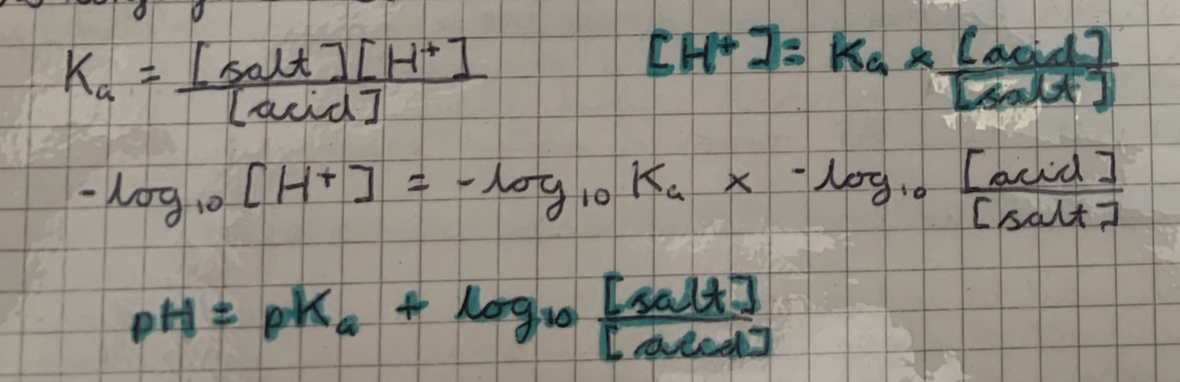 Ka = [salt][H+]/[acid] [H+] = Ka × [acid]/[salt]
-log10 [H+] = -log10 Ka × -log10 [acid]/[salt]
pH = pKa + log10 [salt]/[acid]